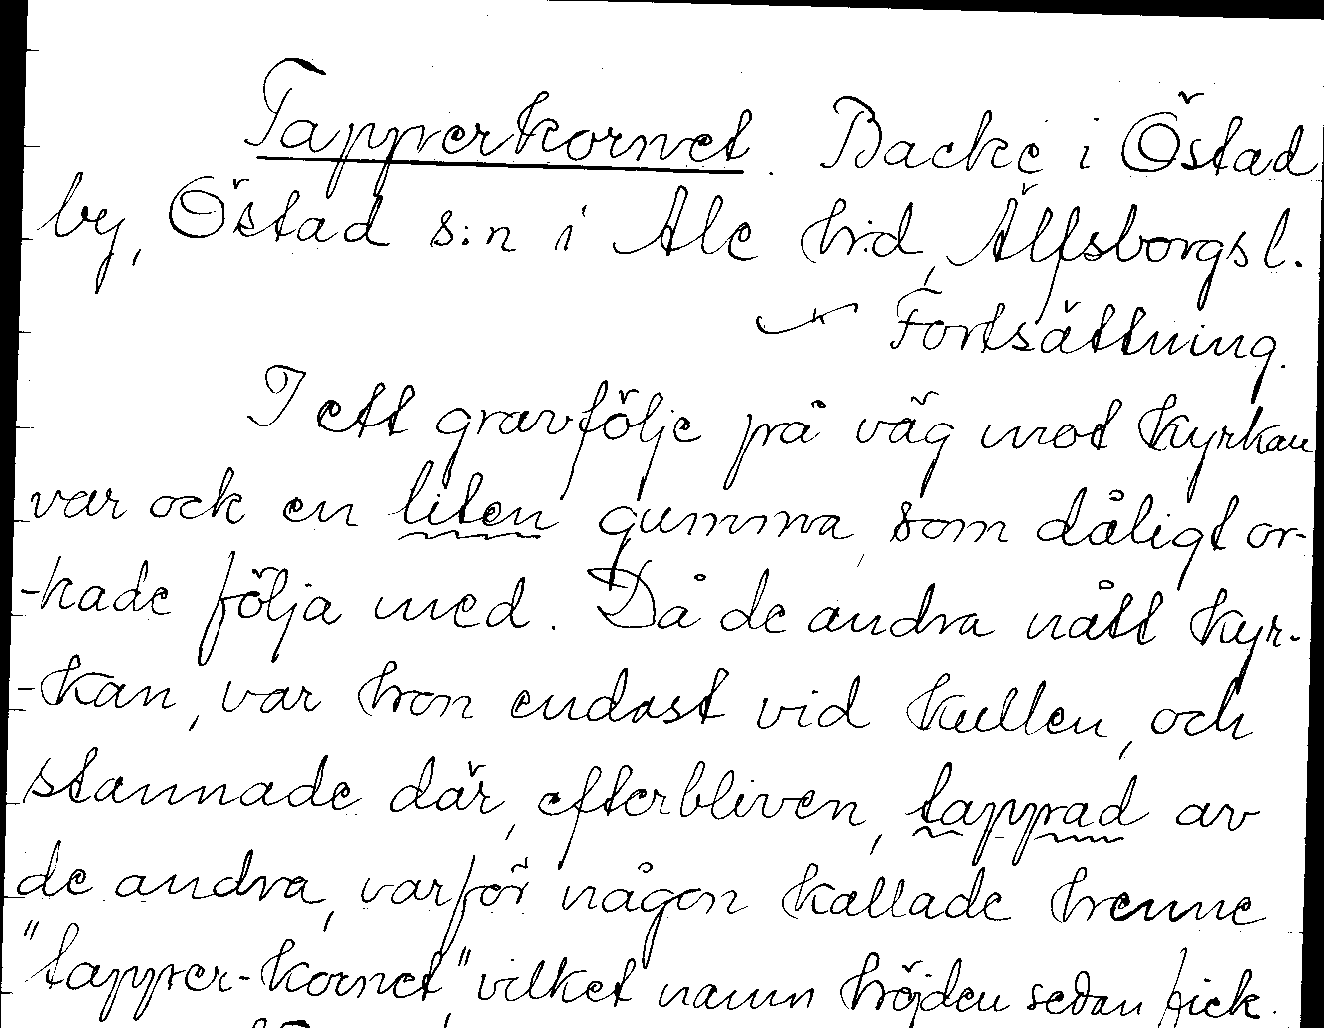 Tapperkornet. Backe i Östad
by, Östad s:n i Ale hrd, Älfsborgs l.
Fortsättning.
I ett gravfölje på väg mot kyrkan
var ock en liten gumma, som dåligt or-
-kade följa med. Då de andra nått kyr-
-kan, var hon endast vid kullen, och
stannade där, efterbliven, tapprad av
de andra, varför någon kallade henne
"tapper-kornet", vilket namn höjden sedan fick.